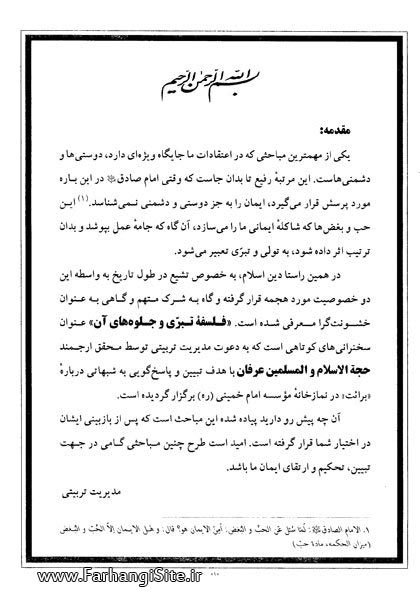 بسم الله الرحمن الرحیم
مقدمه:
یکی از مهمترین مباحثی که در اعتقادات ما جایگاه ویژه‌ای دارد، دوستی‌ها و
دشمنی‌هاست. این مرتبهٔ رفیع تا بدان جاست که وقتی امام صادق در این باره
مورد پرسش قرار می‌گیرد، ایمان را به جز دوستی و دشمنی نمی‌شناسد.(۱) این
حب و بغض‌ها که شاکلهٔ ایمانی ما را می‌سازد، آن گاه که جامهٔ عمل بپوشد و بدان
ترتیب اثر داده شود، به تولی و تبرّی تعبیر می‌شود.
در همین راستا دین اسلام، به خصوص تشیع در طول تاریخ به واسطه این
دو خصوصیت مورد هجمه قرار گرفته و گاه به شرک متهم و گاهی به عنوان
خشونت‌گرا معرفی شده است. «فلسفهٔ تبرّی و جلوه‌های آن» عنوان
سخنرانی‌های کوتاهی است که به دعوت مدیریت تربیتی توسط محقق ارجمند
حجة الاسلام و المسلمین عرفان با هدف تبیین و پاسخ‌گویی به شبهاتی دربارهٔ
«برائت» در نمازخانهٔ مؤسسه امام خمینی (ره) برگزار گردیده است.
آن چه پیش رو دارید پیاده شده این مباحث است که پس از بازبینی ایشان
در اختیار شما قرار گرفته است. امید است طرح چنین مباحثی گامی در جهت
تبیین، تحکیم و ارتقای ایمان ما باشد.
مدیریت تربیتی
۱. الامام الصادق: لمّا سُئل عَن الحبّ و البُغض: أمِنَ الایمان هو؟ قال: و هَل الایمان إلّا الحُبّ و البُغض
(میزان الحکمه، مادهٔ حبّ)
www.FarhangiSite.ir